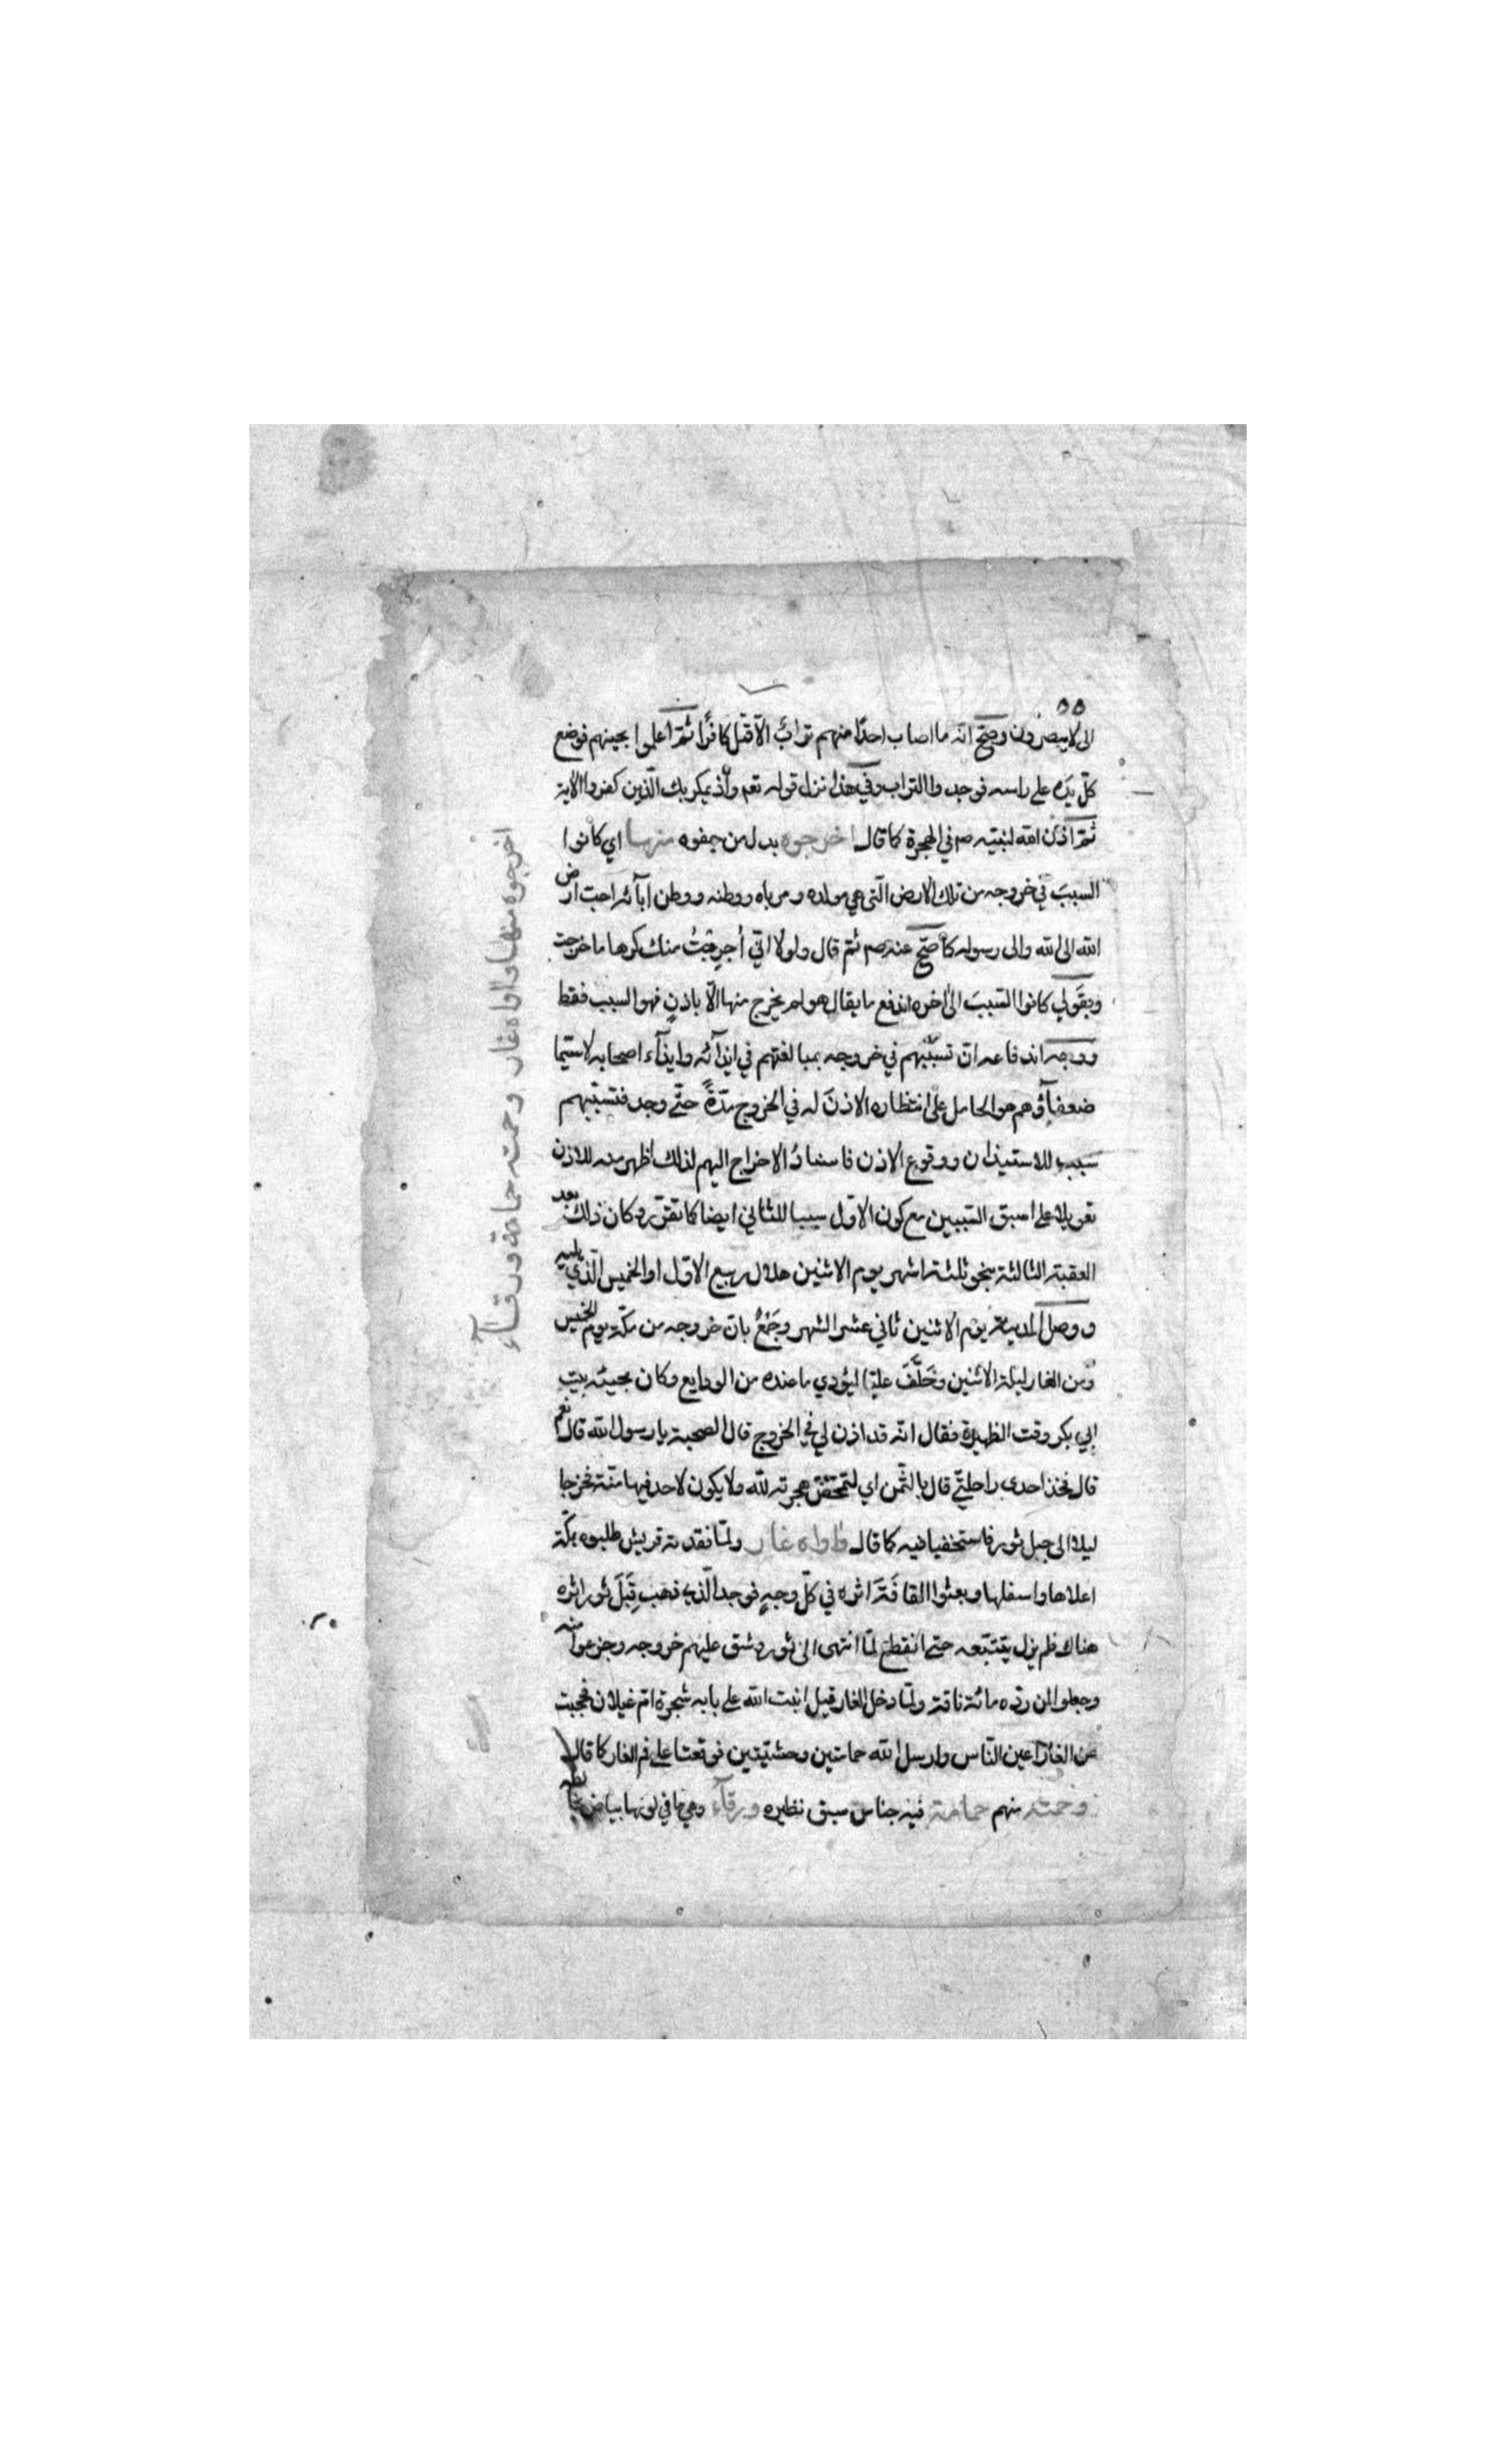 ٥٥
الى لا يبصرون وصح انه ما اصاب احدًا منهم ترابٌ الّا قتل كافرًا ثم اعلموا بحينهم فوضع
كلّ يده على راسه فوجدوا التراب وفي هذا نزل قوله تعم واذ يمكر بك الّذين كفروا الآية
ثمّ اذن الله لنبيّه صم في الهجرة كما قال اخرجوه بدل من جفوه منها اي كانوا
السببَ في خروجه من تلك الارض الّتي هي مولده ومرباه ووطنه ووطن آبآئه احبّ ارض
الله الى الله والى رسوله كما صحّ عنه صم ثم قال ولولا انّي أُخرجتُ منك كرها ما خرجت
وبقولي كانوا السّببَ الى اخره اندفع ما يقال هو لم يخرج منها الّا باذنٍ فهو السبب فقط
ووجه اندفاعه انّ تسبّبهم في خروجه بمبالغتهم في ايذآئه وايذآء اصحابه لا سيّما
ضعفآؤهم هو الحامل على انتظاره الاذنَ له في الخروج مدّةً حتّى وجد فتسبّبهم
سبب للاستيذان ووقوع الاذن فاسنادُ الاخراج اليهم لذلك اظهر منه للاذن
تعويلا على اسبق السّببين مع كون الاوّل سببا للثاني ايضا كما تقرّر وكان ذلك بعد
العقبة الثالثة بنحو ثلثة اشهر يوم الاثنين هلال ربيع الاوّل او الخميس الّذي يليه
ووصل المدينة يوم الاثنين ثاني عشر الشهر وجَمْعٌ بانّ خروجه من مكّة يوم الخميس
ومن الغار ليلة الاثنين وخَلَّفَ عليّا ليؤدي ما عنده من الودايع وكان بحيثه بيت
ابي بكر وقت الظهيرة فقال انّه قد اذن لي في الخروج قال الصحبة يا رسول الله قال نعم
قال فخذ احدى راحلتيّ قال بالثّمن اي لتتمحّض هجرته لله ولا يكون لاحد فيها منّة فخرجا
ليلا الى جبل ثور فاستخفيا فيه كما قال واواه غار ولمّا فقدته قريش طلبوه بمكّة
اعلاها واسفلها وبعثوا القافَةَ اثره في كلّ وجهٍ فوجد الّذي ذهب قِبَلَ ثور اثره
هناك فلم يزل يتتبّعه حتّى انقطع لمّا انتهى الى ثور وشق عليهم خروجه وجزعوا منه
وجعلوا لمن ردّه مائة ناقة ولمّا دخل الغار قيل انبت الله على بابه شجرة امّ غيلان فحجبت
عن الغار اعين النّاس وارسل الله حمامتين وحشيّتين فوقعتا على فم الغار كما قال
وحمته منهم حمامة فيه جناس سبق نظيره ورقآء وهي ما في لونها بياض
اخرجوه منها واواه غار وحمته حمامة ورقآء